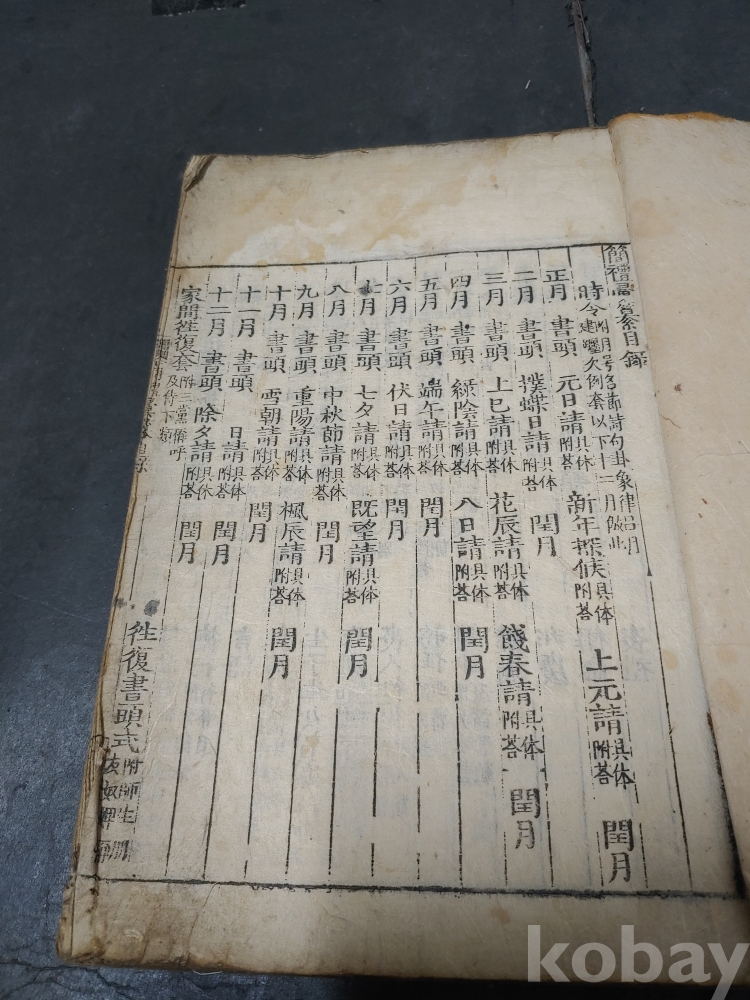 簡禮彙目錄
時令附月号名節詩句卦象律呂月建躔次例套以下十二月倣此
正月 書頭 元日請具体附答 新年探候具体附答 上元請具体附答 閏月
二月 書頭 撲蝶日請具体附答 閏月
三月 書頭 上巳請具体附答 花辰請具体附答 餞春請具体附答 閏月
四月 書頭 綠陰請具体附答 八日請具体附答 閏月
五月 書頭 端午請具体附答 閏月
六月 書頭 伏日請具体附答 閏月
七月 書頭 七夕請具体附答 既望請具体附答 閏月
八月 書頭 中秋節請具体附答 閏月
九月 書頭 重陽請具体附答 楓辰請具体附答 閏月
十月 書頭 雪朝請具体附答 閏月
十一月 書頭 日請具体附答 閏月
十二月 書頭 除夕請具体附答 閏月
家間徃復套附三黨稱呼及侍下類 徃復書頭式附師生
kobay